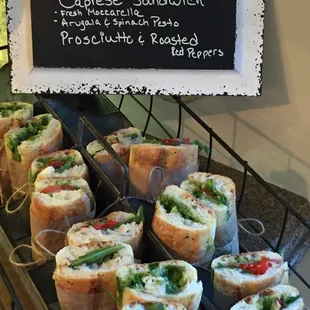 Caprese Sandwich
- Fresh Mozzarella
- Arugala & Spinach Pesto
Prosciutto & Roasted
Red Peppers